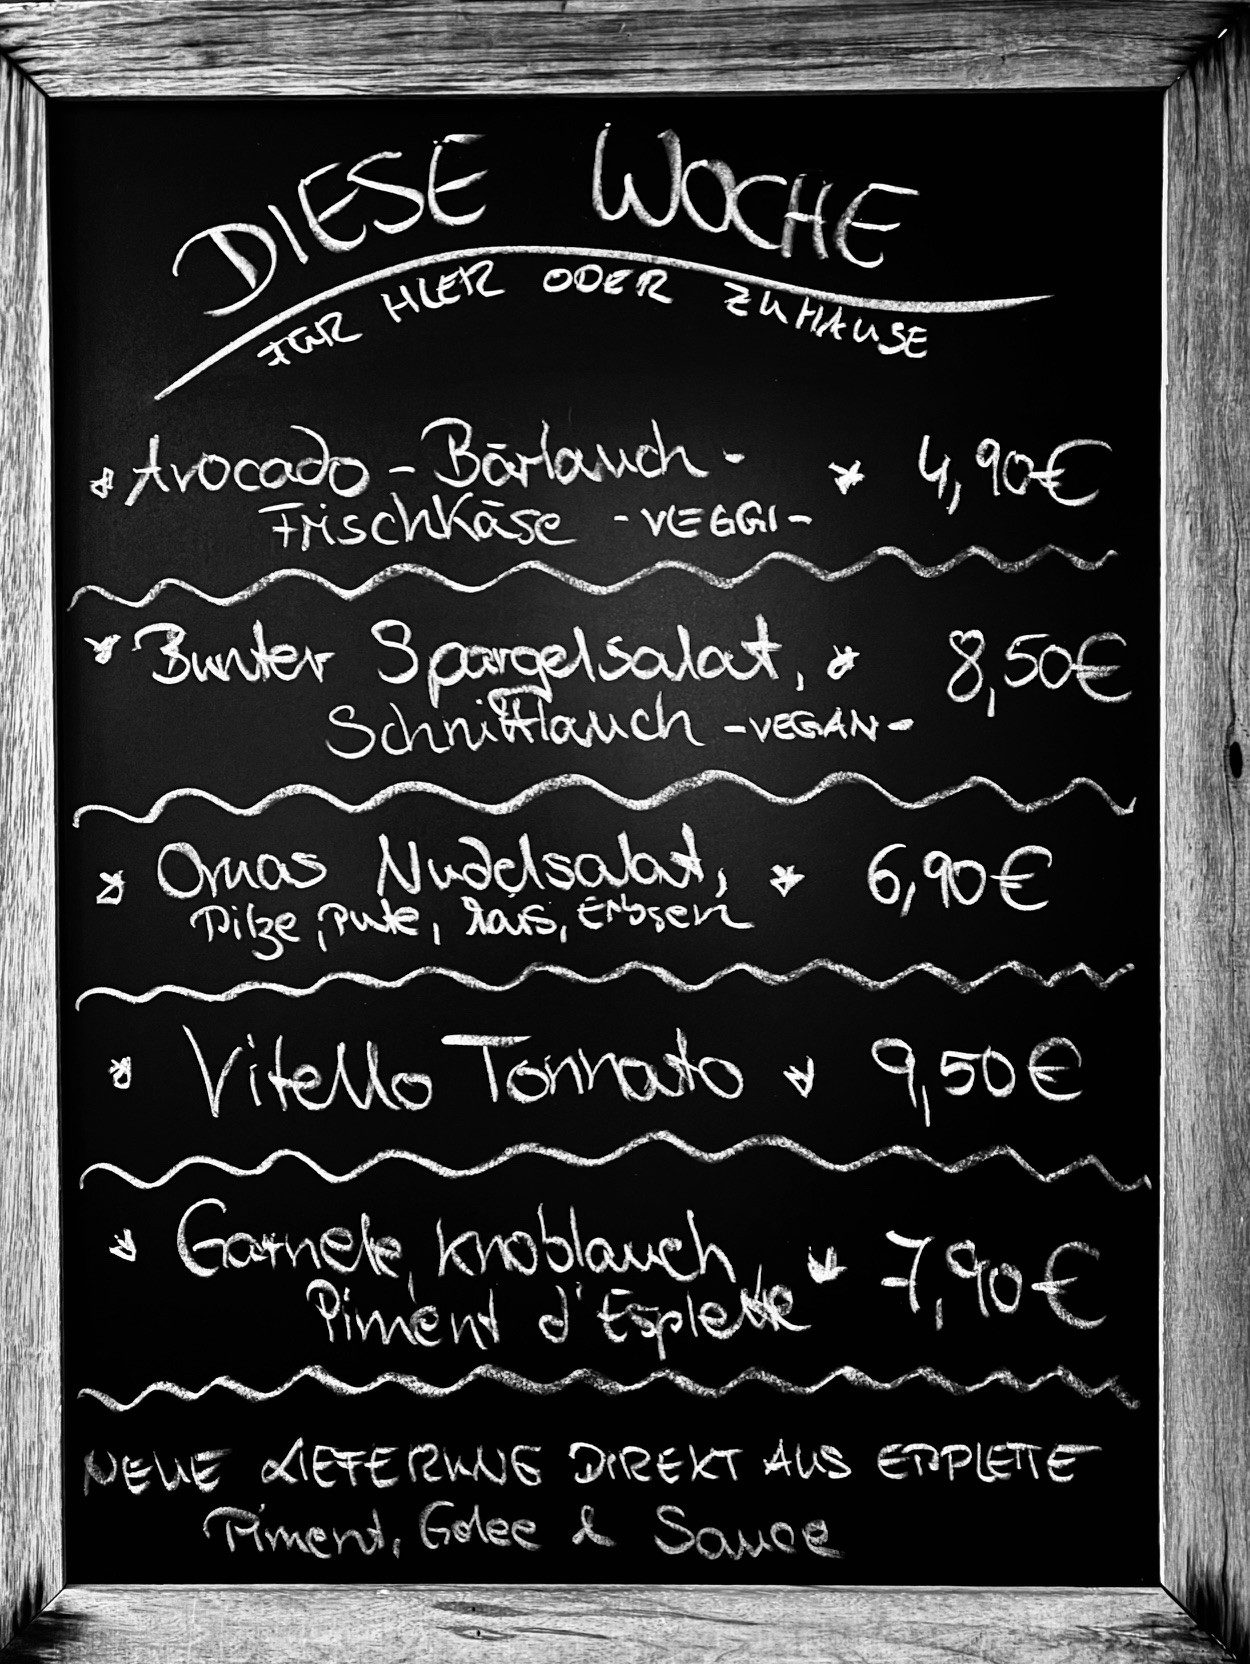 DIESE WOCHE
FÜR HIER ODER ZUHAUSE
Avocado - Bärlauch - * 4,90€
Frischkäse - VEGGI -
Bunter Spargelsalat, * 8,50€
Schnittlauch - VEGAN -
Omas Nudelsalat, * 6,90€
Pilze, Pute, Mais, Erbsen
* Vitello Tonnato * 9,50€
Garnele, Knoblauch, * 7,90€
Piment d'Esplette
NEUE LIEFERUNG DIREKT AUS ESPLETTE
Piment, Gelee & Sauce